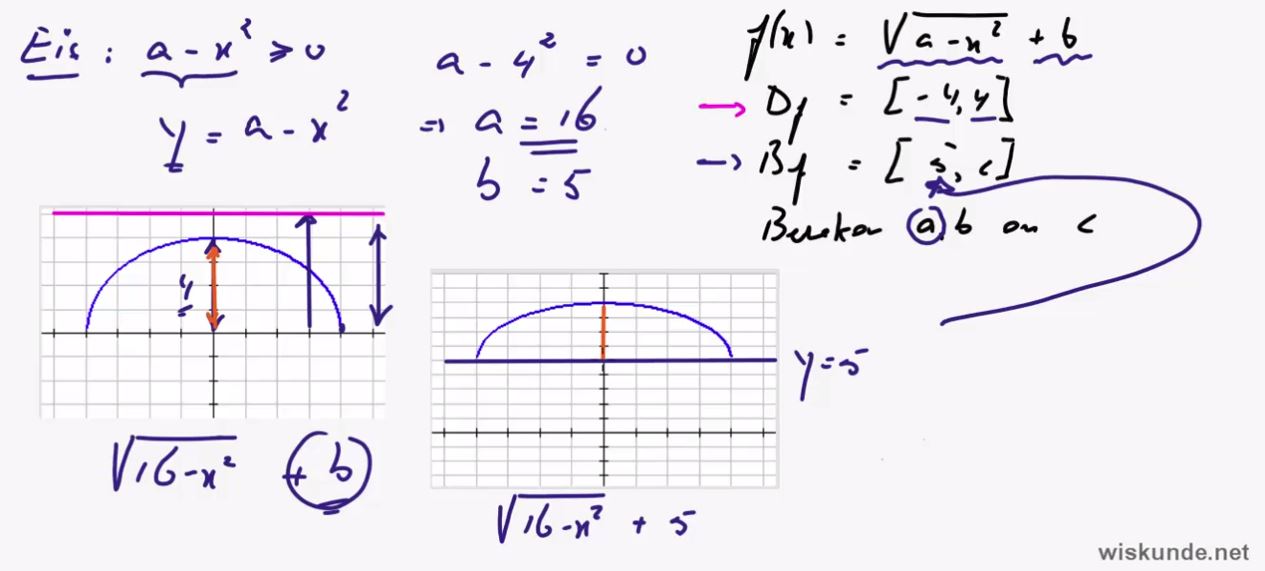 Eis : a - x² ⩾ 0
y = a - x²
a - 4² = 0
⇒ a = 16
b = 5
f(x) = √(a - x²) + b
→ Df = [-4, 4]
→ Bf = [5, c]
Bereken a, b en c
4
√(16 - x²) + b
y = 5
√(16 - x²) + 5
wiskunde.net